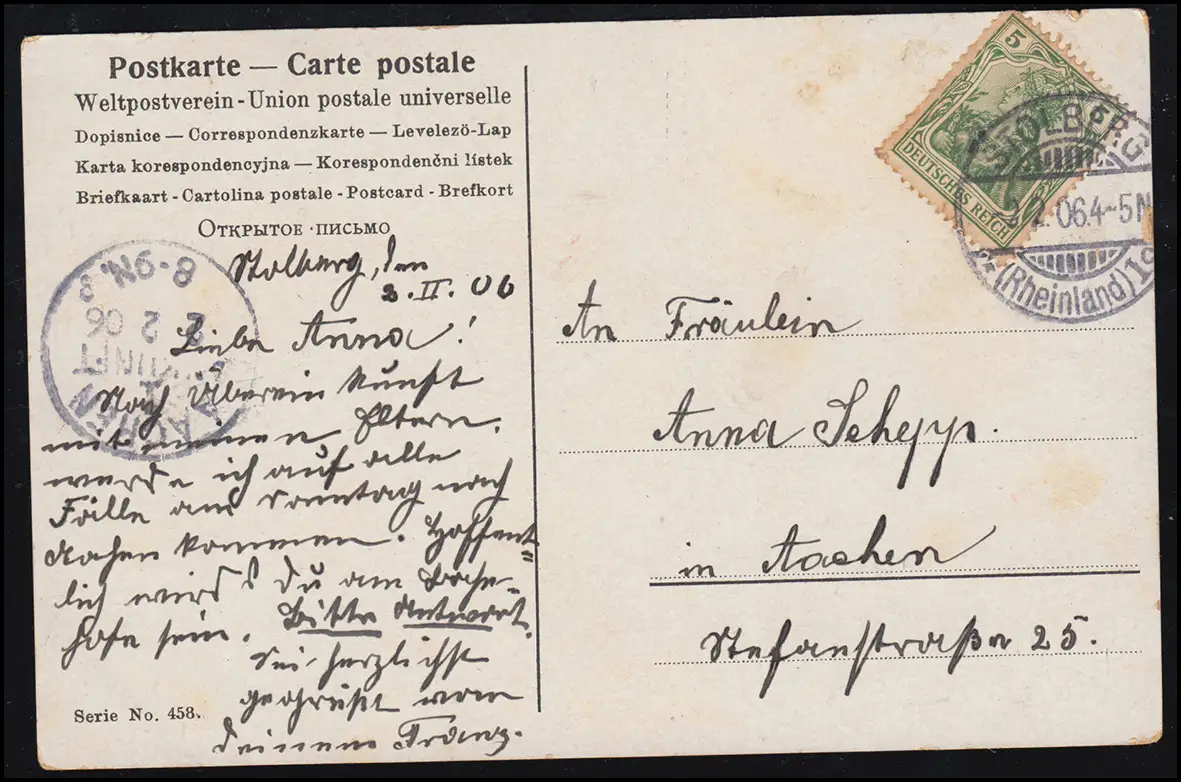 Postkarte — Carte postale
Weltpostverein - Union postale universelle
Dopisnice — Correspondenzkarte — Levelezö-Lap
Karta korespondencyjna — Korespondenční lístek
Briefkaart - Cartolina postale - Postcard - Brefkort
Открытое письмо
Stolberg, den
2. II. 06
Liebe Anna!
Nach Überein kunft
mit meinen Eltern,
werde ich auf alle
Fälle am Sonntag nach
Aachen kommen. Hoffent=
lich wirst Du am Bahn-
hofe sein. Bitte Antwort.
Sei herzlichst
gegrüßt von
deinem Franz.
Serie No. 458.
8-9N. 
2 2 06
ANKUNFT
AACHEN
5
DEUTSCHES REICH
STOLBERG
2.2.06.4-5N
(Rheinland)
An Fräulein
Anna Schepp.
in Aachen
Stefanstraße 25.